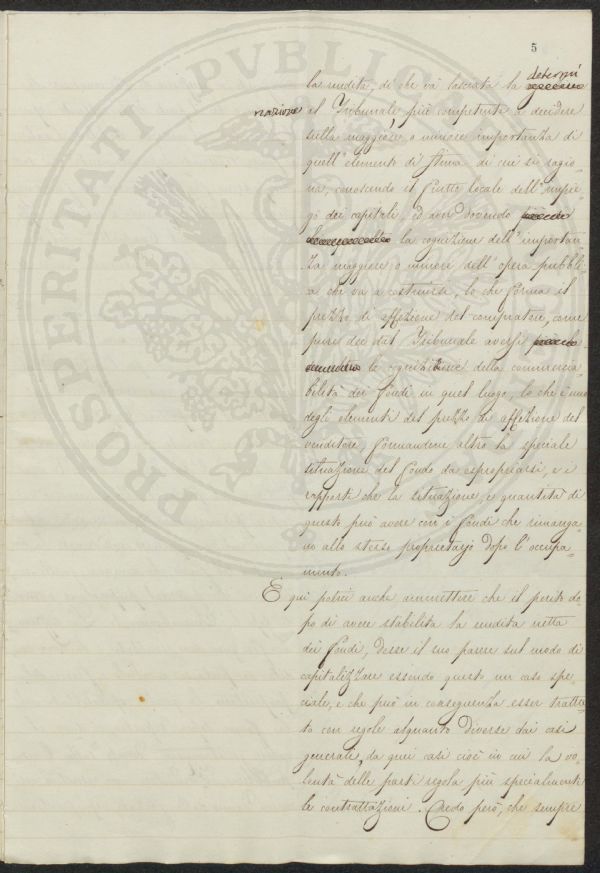 5
la rendita, di che va lasciata la determi
nazione al Tribunale più competente a decidere
sulla maggiore, o minore importanza di
quell'elemento di stima di cui si ragio
na, conoscendo il frutto locale dell'impie
go dei capitali, ed non dovendo
la cognizione dell'importan
za maggiore o minore dell'opera pubbli
ca che va a costruirsi, lo che forma il
prezzo di affezione del compratore, come
pure dee dal Tribunale aversi
le cognizione della commercia
bilità dei fondi in quel luogo, lo che è uno
degli elementi del prezzo di affezione del
venditore, formandone altro la speciale
situazione del fondo da espropriarsi, e i
rapporti che la situazione, e quantità di
questo può avere con i fondi che rimanga
no allo stesso proprietario dopo l'occupa
mento.
E qui potrei anche ammettere che il perito do
po di avere stabilita la rendita netta
dei fondi, desse il suo parere sul modo di
capitalizzare essendo questo un caso spe
ciale, e che può in conseguenza esser tratta
to con regole alquanto diverse dai casi
generali, da quei casi cioè in cui la vo
lontà delle parti regola più specialmente
le contrattazioni. Credo però, che sempre
PROSPERITATI PUBLICAE